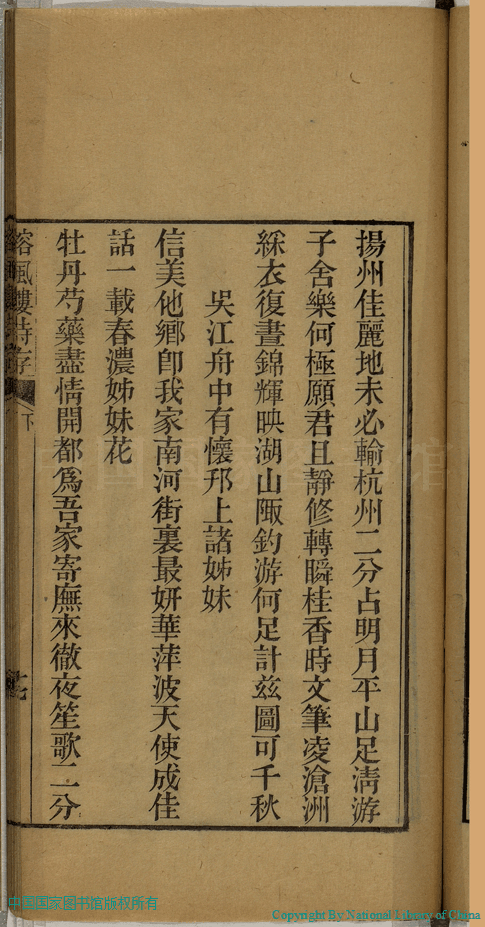 揚州佳麗地未必輸杭州二分占明月平山足淸游
子舍樂何極願君且靜修轉瞬桂香時文筆凌滄洲
綵衣復晝錦輝映湖山陬釣游何足計兹圖可千秋
吳江舟中有懷邗上諸姊妹
信美他鄕卽我家南河街裏最妍華萍波天使成佳
話一載春濃姊妹花
牡丹芍藥盡情開都爲吾家寄廡來徹夜笙歌二分
風樓詩存
下
中国国家图书馆版权所有
Copyright By National Library of China